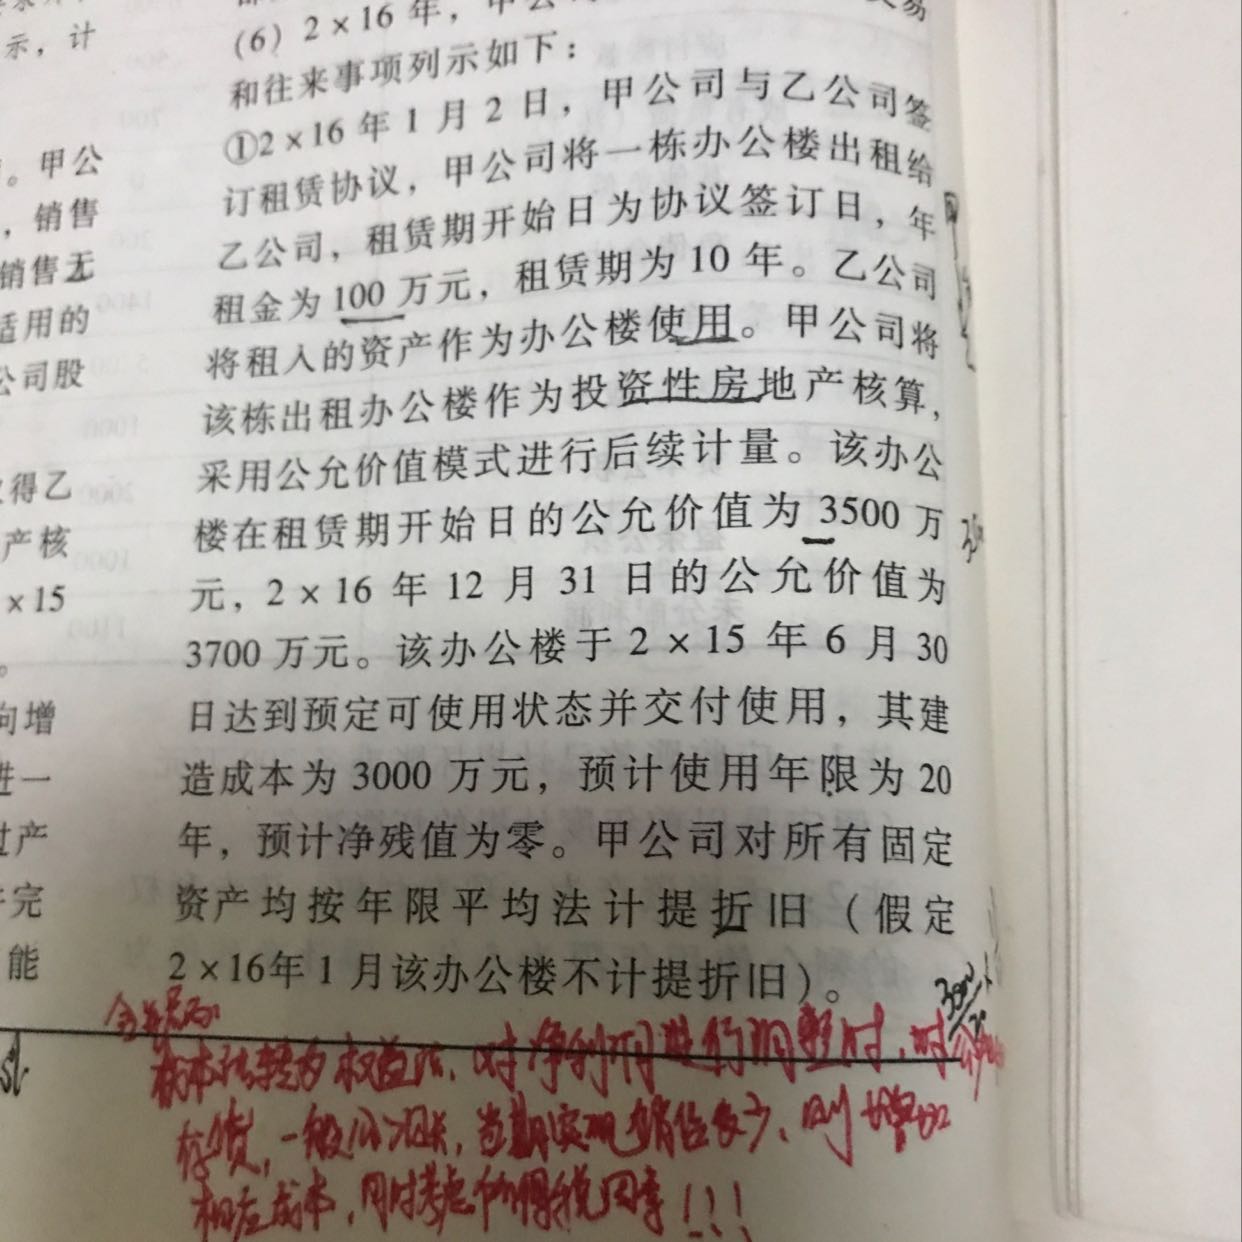 示，计
。甲公
，销售
销售无
适用的
公司股
得乙
产核
×15
。
向增
进一
过产
完
能
(6) 2×16年，甲公
和往来事项列示如下：
①2×16年1月2日，甲公司与乙公司签
订租赁协议，甲公司将一栋办公楼出租给
乙公司，租赁期开始日为协议签订日，年
租金为100万元，租赁期为10年。乙公司
将租入的资产作为办公楼使用。甲公司将
该栋出租办公楼作为投资性房地产核算，
采用公允价值模式进行后续计量。该办公
楼在租赁期开始日的公允价值为3500万
元，2×16年12月31日的公允价值为
3700万元。该办公楼于2×15年6月30
日达到预定可使用状态并交付使用，其建
造成本为3000万元，预计使用年限为20
年，预计净残值为零。甲公司对所有固定
资产均按年限平均法计提折旧（假定
2×16年1月该办公楼不计提折旧）。
成本法转为权益法，对净利润进行调整时，对
存货，一般公式，当期实现销售多少，则增加
相应成本，同时考虑所得税因素！！！